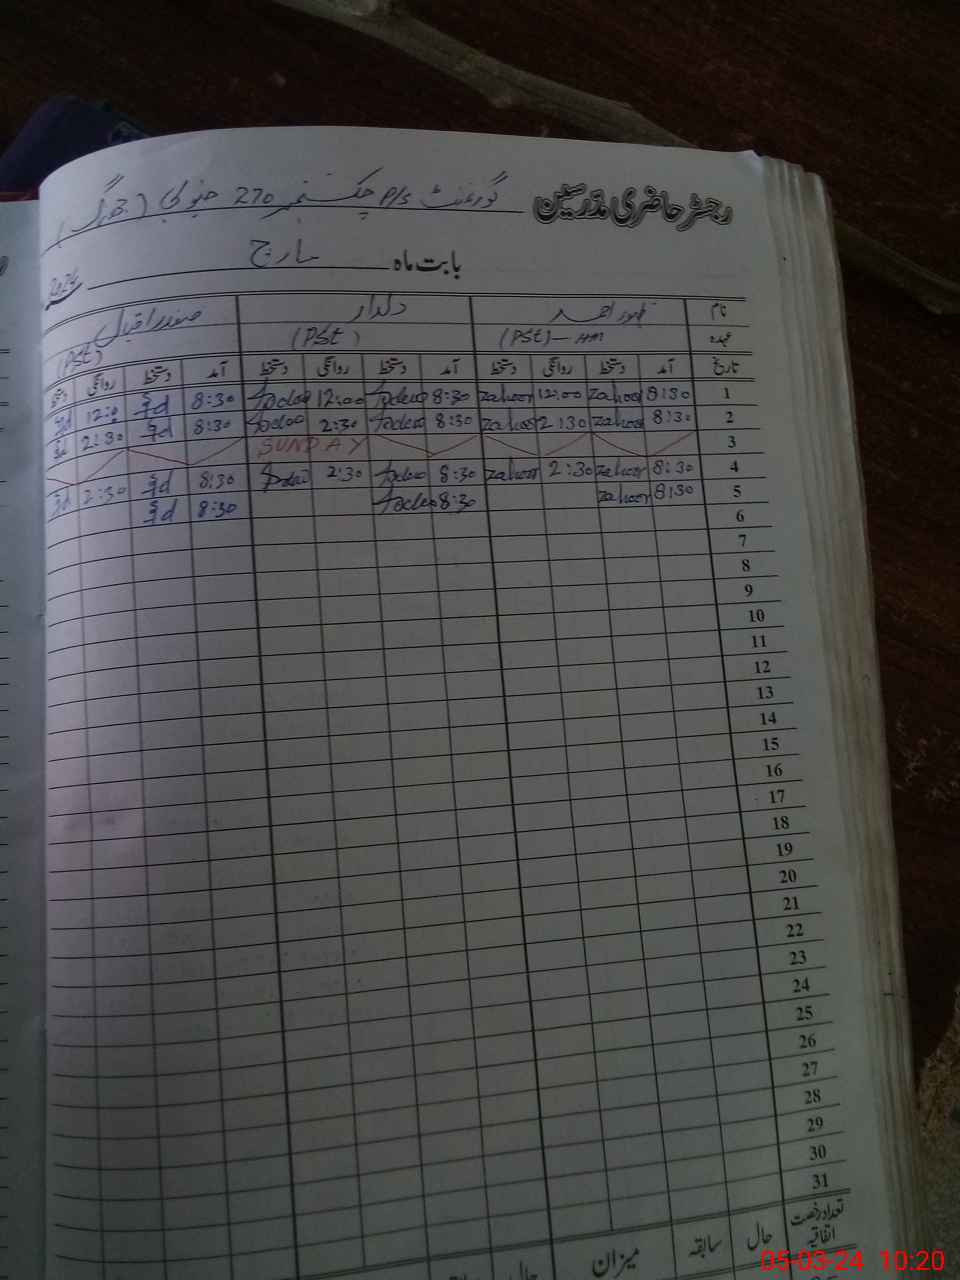 رجسٹر حاضری مدرسین گورنمنٹ P/S چک نمبر 270 جنوبی
بابت ماہ مارچ 2024
نام ظہور احمد دلدار صفدر اقبال
عہدہ (PSt)-HM (PSt) (PSt)
تاریخ آمد دستخط روانگی دستخط آمد دستخط روانگی دستخط آمد دستخط روانگی دستخط
1 8:30 zahoor 12:00 zahoor 8:30 12:00 8:30 12:0
2 8:30 zahoor 2:30 zahoor 8:30 2:30 8:30 2:30
3 SUNDAY
4 8:30 zahoor 2:30 zahoor 8:30 2:30 8:30 2:30
5 8:30 zahoor 8:30 8:30
6
7
8
9
10
11
12
13
14
15
16
17
18
19
20
21
22
23
24
25
26
27
28
29
30
31
تعداد رخصت اتفاقیہ حال سابقہ میزان حال
05-03-24 10:20